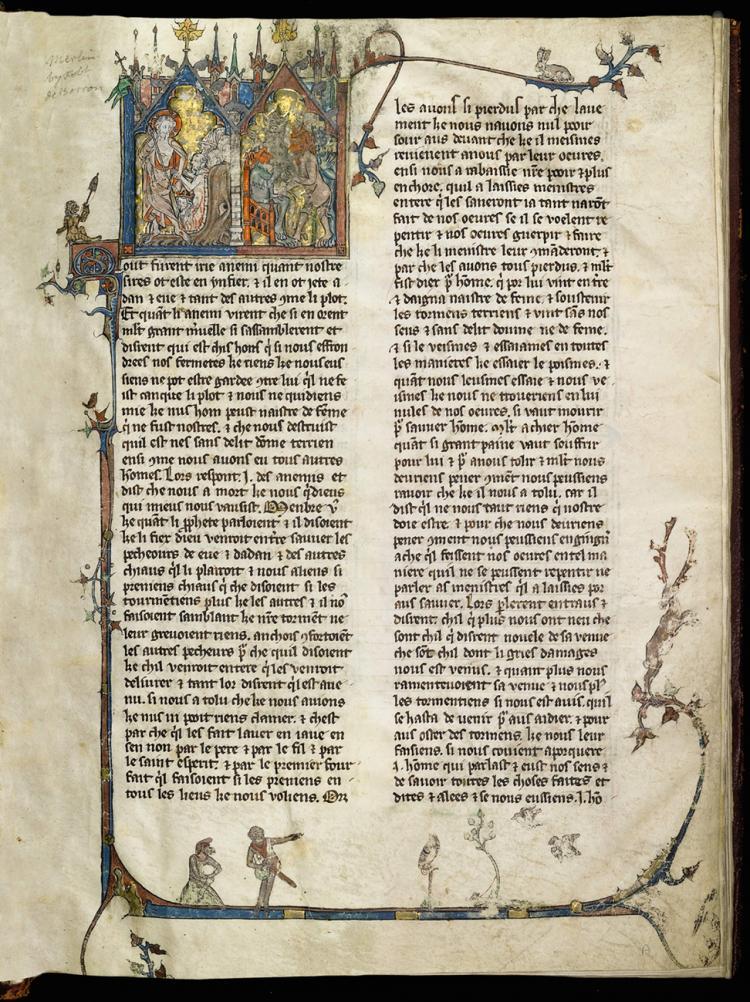 Merlin
by Robt
de Borron
out furent irie anemi quant nostre
sires ot este en ynfier. ⁊ il en ot jete a
dan ⁊ eue ⁊ tant des autres ꝯme li plot.
Et quāt li anemi virent che si en orent
mlt grant m̄uelle si sassamblerent et
disrent qui est chis hons q̄ si nous effron
drees nos fermetes ke riens ke nouseus
siens ne pot estre gardee ꝯtre lui q̄l ne fe
ist canque li plot ⁊ nous ne quidiens
mie ke nus hom peust naistre de fēme
q̄ ne fust nostres. ⁊ che nous destruist
quil est nes sans delit dōme terrien
ensi ꝯme nous auons eu tous autres
homes. Lors respont .j. des anemis et
dist che nous a mort ke nous q̄diens
qui mieus nous vausist. Menbre v̄
ke quāt li ꝓphete parloient ⁊ il disoient
ke li fiex dieu venroit entre sauuer les
pecheours de eue ⁊ dadan ⁊ des autres
chiaus q̄l li plairoit ⁊ nous aliens si
preniens chiaus q̄ che disoient si les
tourmētiens plus ke les autres ⁊ il nō
faisoient samblant ke nr̄e tormēt ne
leur greuoient riens. anchois ꝯfortoiēt
les autres pecheurs p̄ che quil disoient
ke chil venroit entere q̄l les venroit
deliurer ⁊ tant lor disrent q̄l est aue
nu. si nous a tolu che ke nous auions
ke nus ni poit riens clamer. ⁊ chest
par che q̄l les fait lauer en iaue en
sen non par le pere ⁊ par le fil ⁊ par
le saint esperit. ⁊ par le premier four
fait q̄l faisoient si les preniens en
tous les liens ke nous voliens. Or
les auons si pierdus par che laue
ment ke nous nauons nul pooir
sour aus deuant che ke il meismes
reuienent anous par leur oeures.
ensi nous a rabaissie nr̄e pooir ⁊ plus
enchore. quil a laissies menistres
entere q̄ les saueront ia tant narōt
fait de nos oeures se il se voelent re
pentir ⁊ nos oeures guerpir ⁊ faire
che ke li menistre leur ꝯmāderont. ⁊
par che les auons tous pierdus. ⁊ mlt
fist dier p̄ home. q̄ por lui vint en tr̄e
⁊ daigna naistre de feme. ⁊ soustenir
les tormens terriens ⁊ vint sās nos
seus ⁊ sans delit domme ne de feme.
⁊ si le veismes ⁊ essaiames en toutes
les manieres ke essaier le poismes. ⁊
quāt nous leusmes essaie ⁊ nous ve
ismes ke nous ne troueriens en lui
nules de nos oeures. si vaut mourir
p̄ sauuer home. mlt a chier home
quāt si grant paine vaut souffrir
pour lui ⁊ p̄ anous tolir ⁊ mlt nous
deuriens pener ꝯmēt nous peussiens
rauoir che ke il nous a tolu. car il
dist q̄l ne nous taut riens q̄ nostre
doie estre. ⁊ pour che nous deuriens
pener ꝯment nous peussiens enginḡn
a che q̄l feissent nos oeures entel ma
niere quil ne se peussent repentir ne
parler as menistres q̄l a laissies por
aus sauuer. Lors ꝑlerent entraus ⁊
disrent. chil q̄ plus nous ont neu che
sont chil q̄ disrent nouele de sa venue
che sōt chil dont li gries damages
nous est venus. ⁊ quant plus nous
ramenteuoient sa venue ⁊ nous pl⁹
les tormentiens si nous est auis. quil
se hasta de venir p̄ aus aidier. ⁊ pour
aus oster des tormens. ke nous leur
faisiens. si nous couient aporquerre
.i. home qui parlast ⁊ eust nos sens ⁊
de sauoir toutes les choses faites et
dites ⁊ alees ⁊ se nous eussiens .i. hō